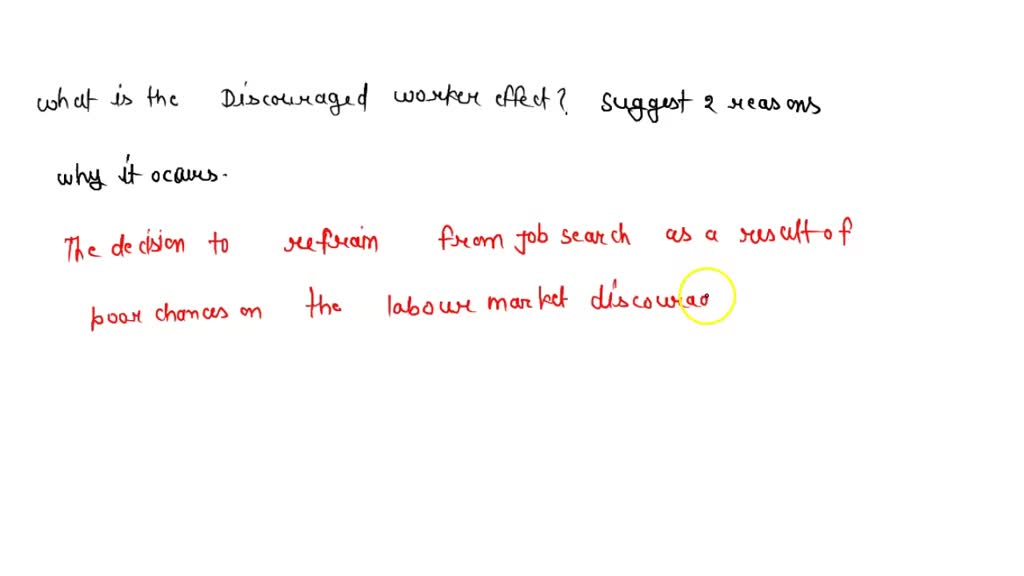 what is the Discouraged worker effect? suggest 2 reasons
why it occurs.
The decision to refrain from job search as a result of
poor chances on the labour market discourag